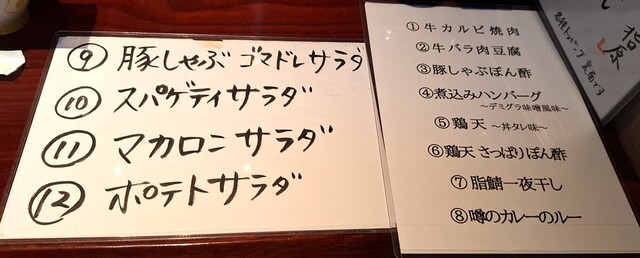 ⑨ 豚しゃぶ ゴマドレサラダ
⑩ スパゲティサラダ
⑪ マカロニサラダ
⑫ ポテトサラダ
①牛カルビ焼肉
②牛バラ肉豆腐
③豚しゃぶぽん酢
④煮込みハンバーグ
～デミグラ味噌風味～
⑤鶏天 ～丼タレ味～
⑥鶏天 さっぱりぽん酢
⑦脂鯖一夜干し
⑧噂のカレーのルー